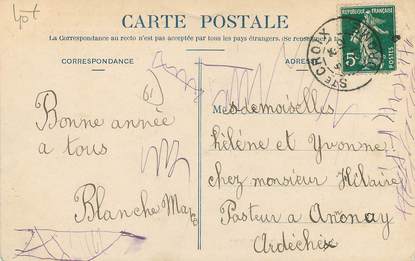 CARTE POSTALE
La Correspondance au recto n'est pas acceptée par tous les pays étrangers. (Se renseigner à
CORRESPONDANCE
ADRES
RÉPUBLIQUE FRANÇAISE
5c
POSTES
STE CROIX
(61)
Bonne année
a tous
Blanche
Mesdemoiselles
hélène et Yvonne
chez monsieur Hélaire
Pasteur a Anonay
Ardéche